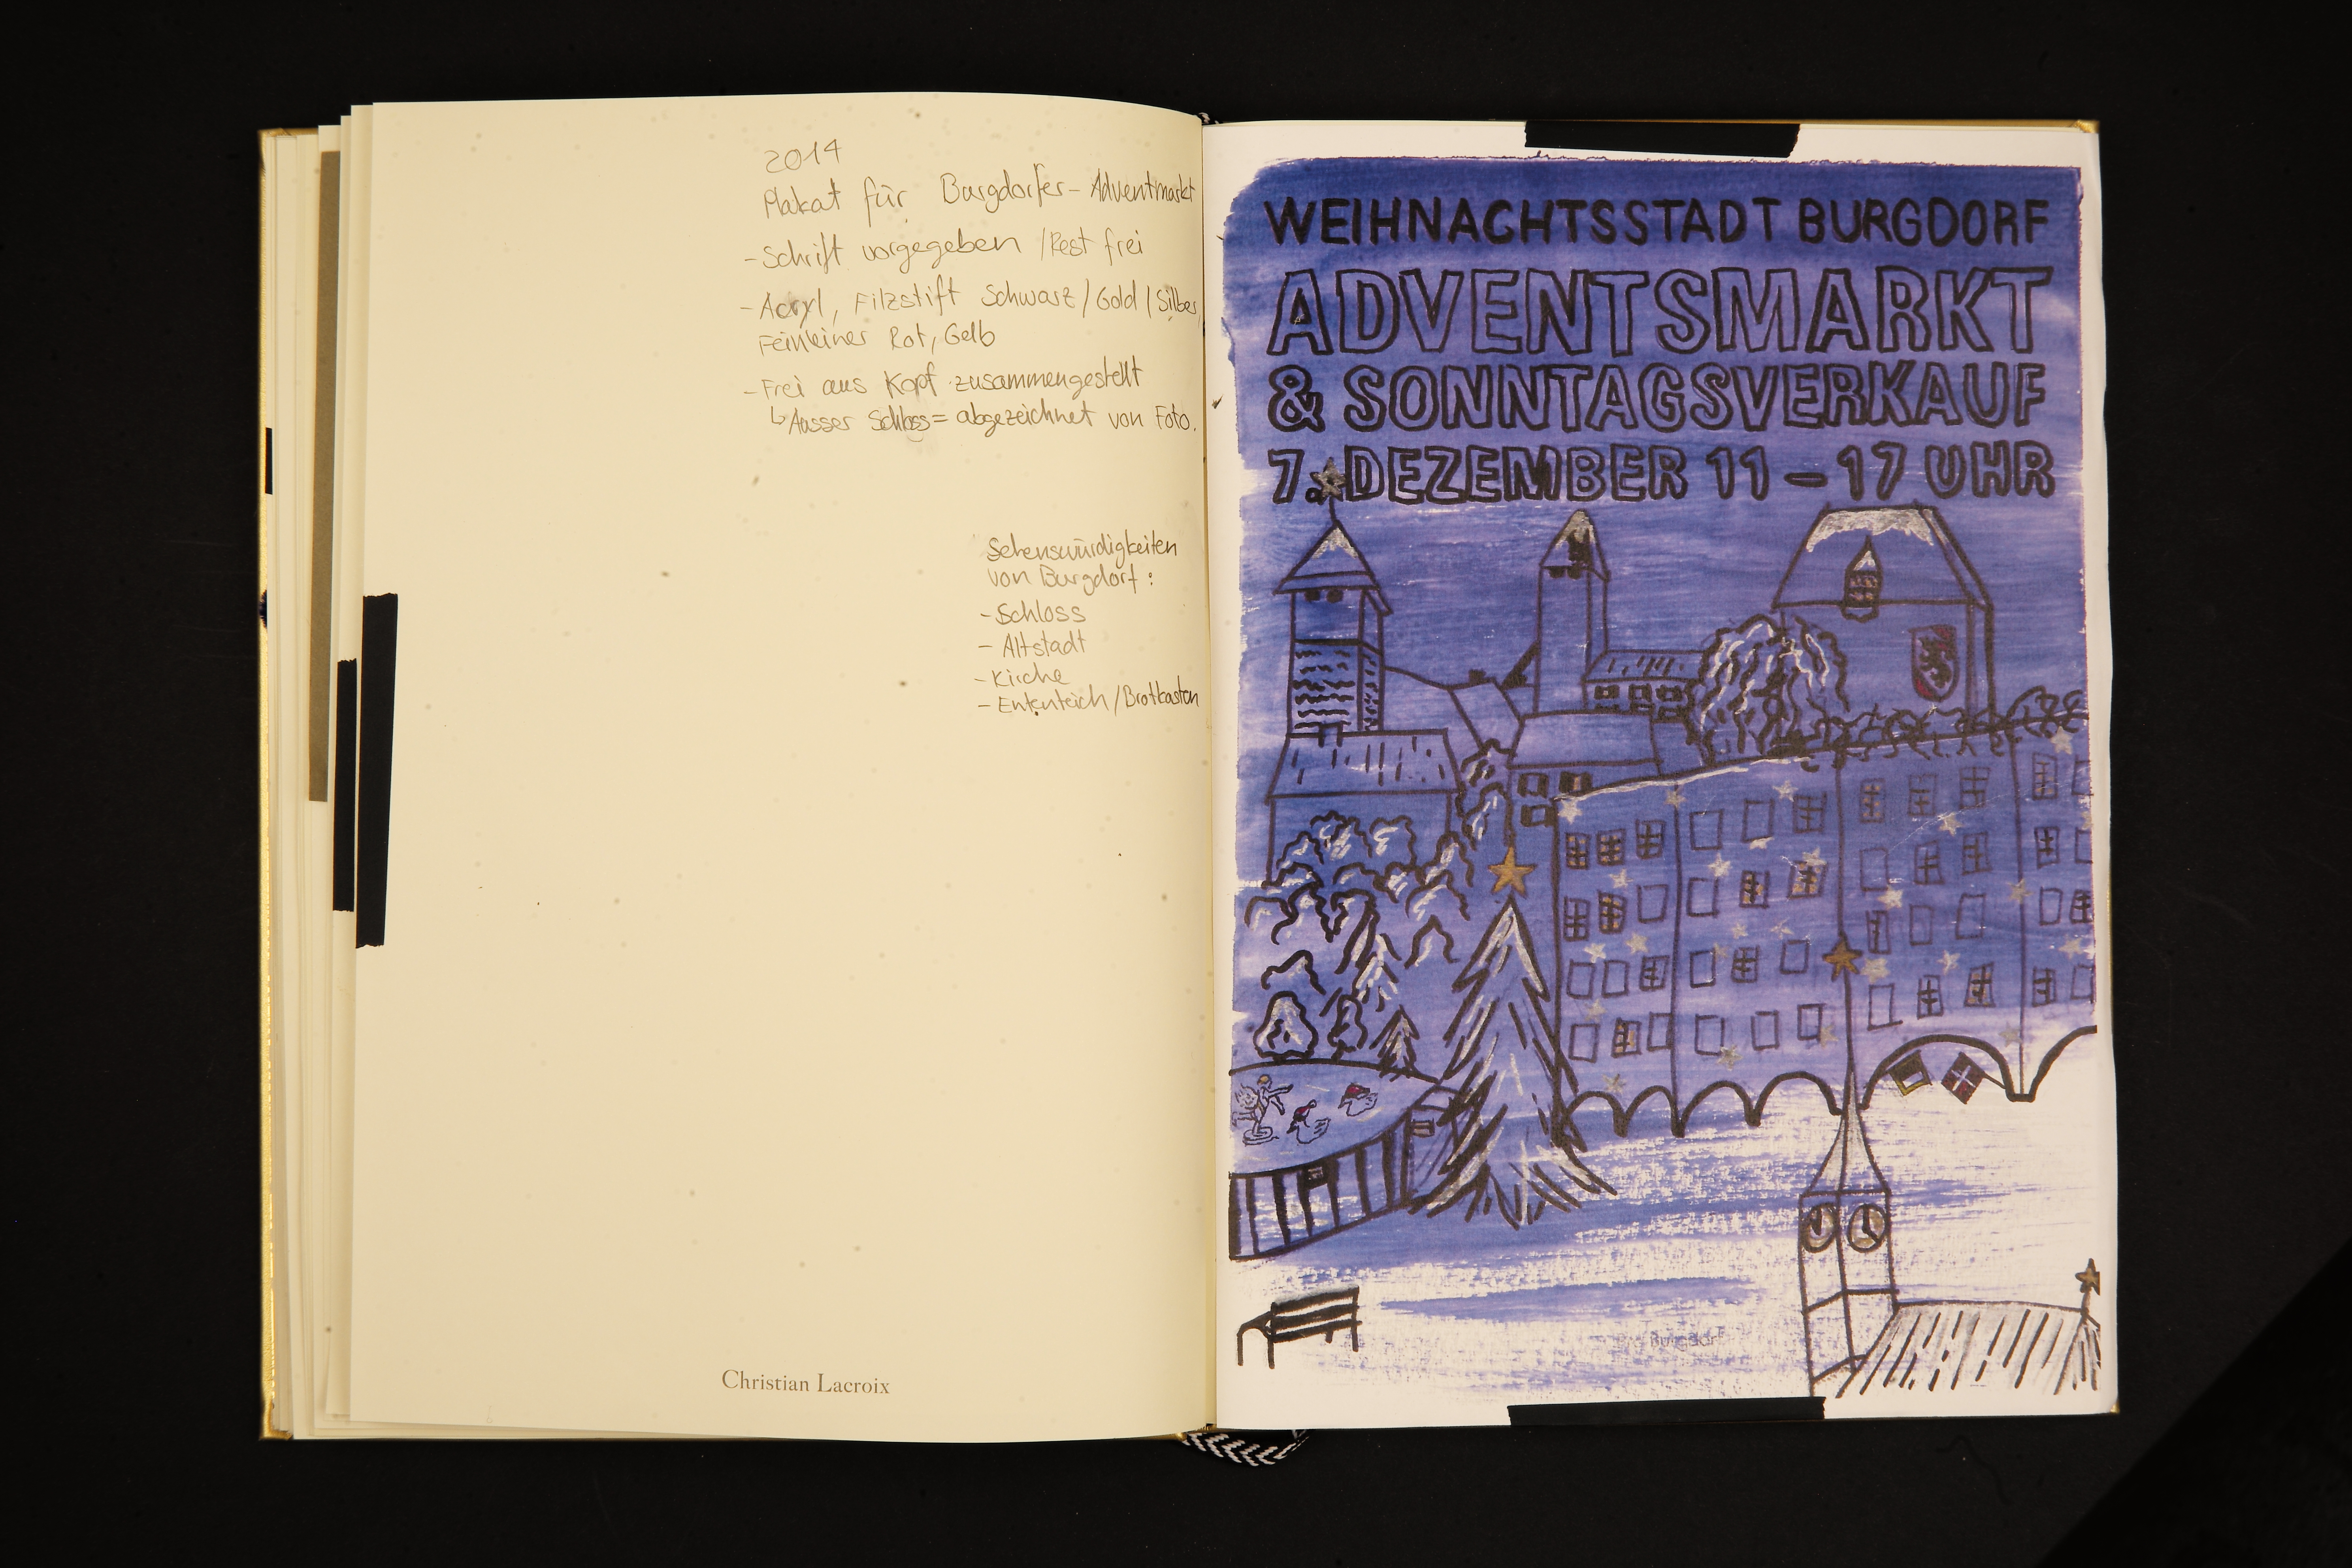 2014
Plakat für Burgdorfer-Adventmarkt
-Schrift vorgegeben /Rest frei
-Acryl, Filzstift Schwarz/Gold/Silber,
Feinleiner Rot, Gelb
-Frei aus Kopf zusammengestellt
↳Ausser Schloss= abgezeichnet von Foto.
Sehenswürdigkeiten
von Burgdorf:
-Schloss
- Altstadt
-Kirche
- Ententeich/Brotkasten
Christian Lacroix
WEIHNACHTSSTADT BURGDORF
ADVENTSMARKT
& SONNTAGSVERKAUF
7. DEZEMBER 11 – 17 UHR
Burgdorf